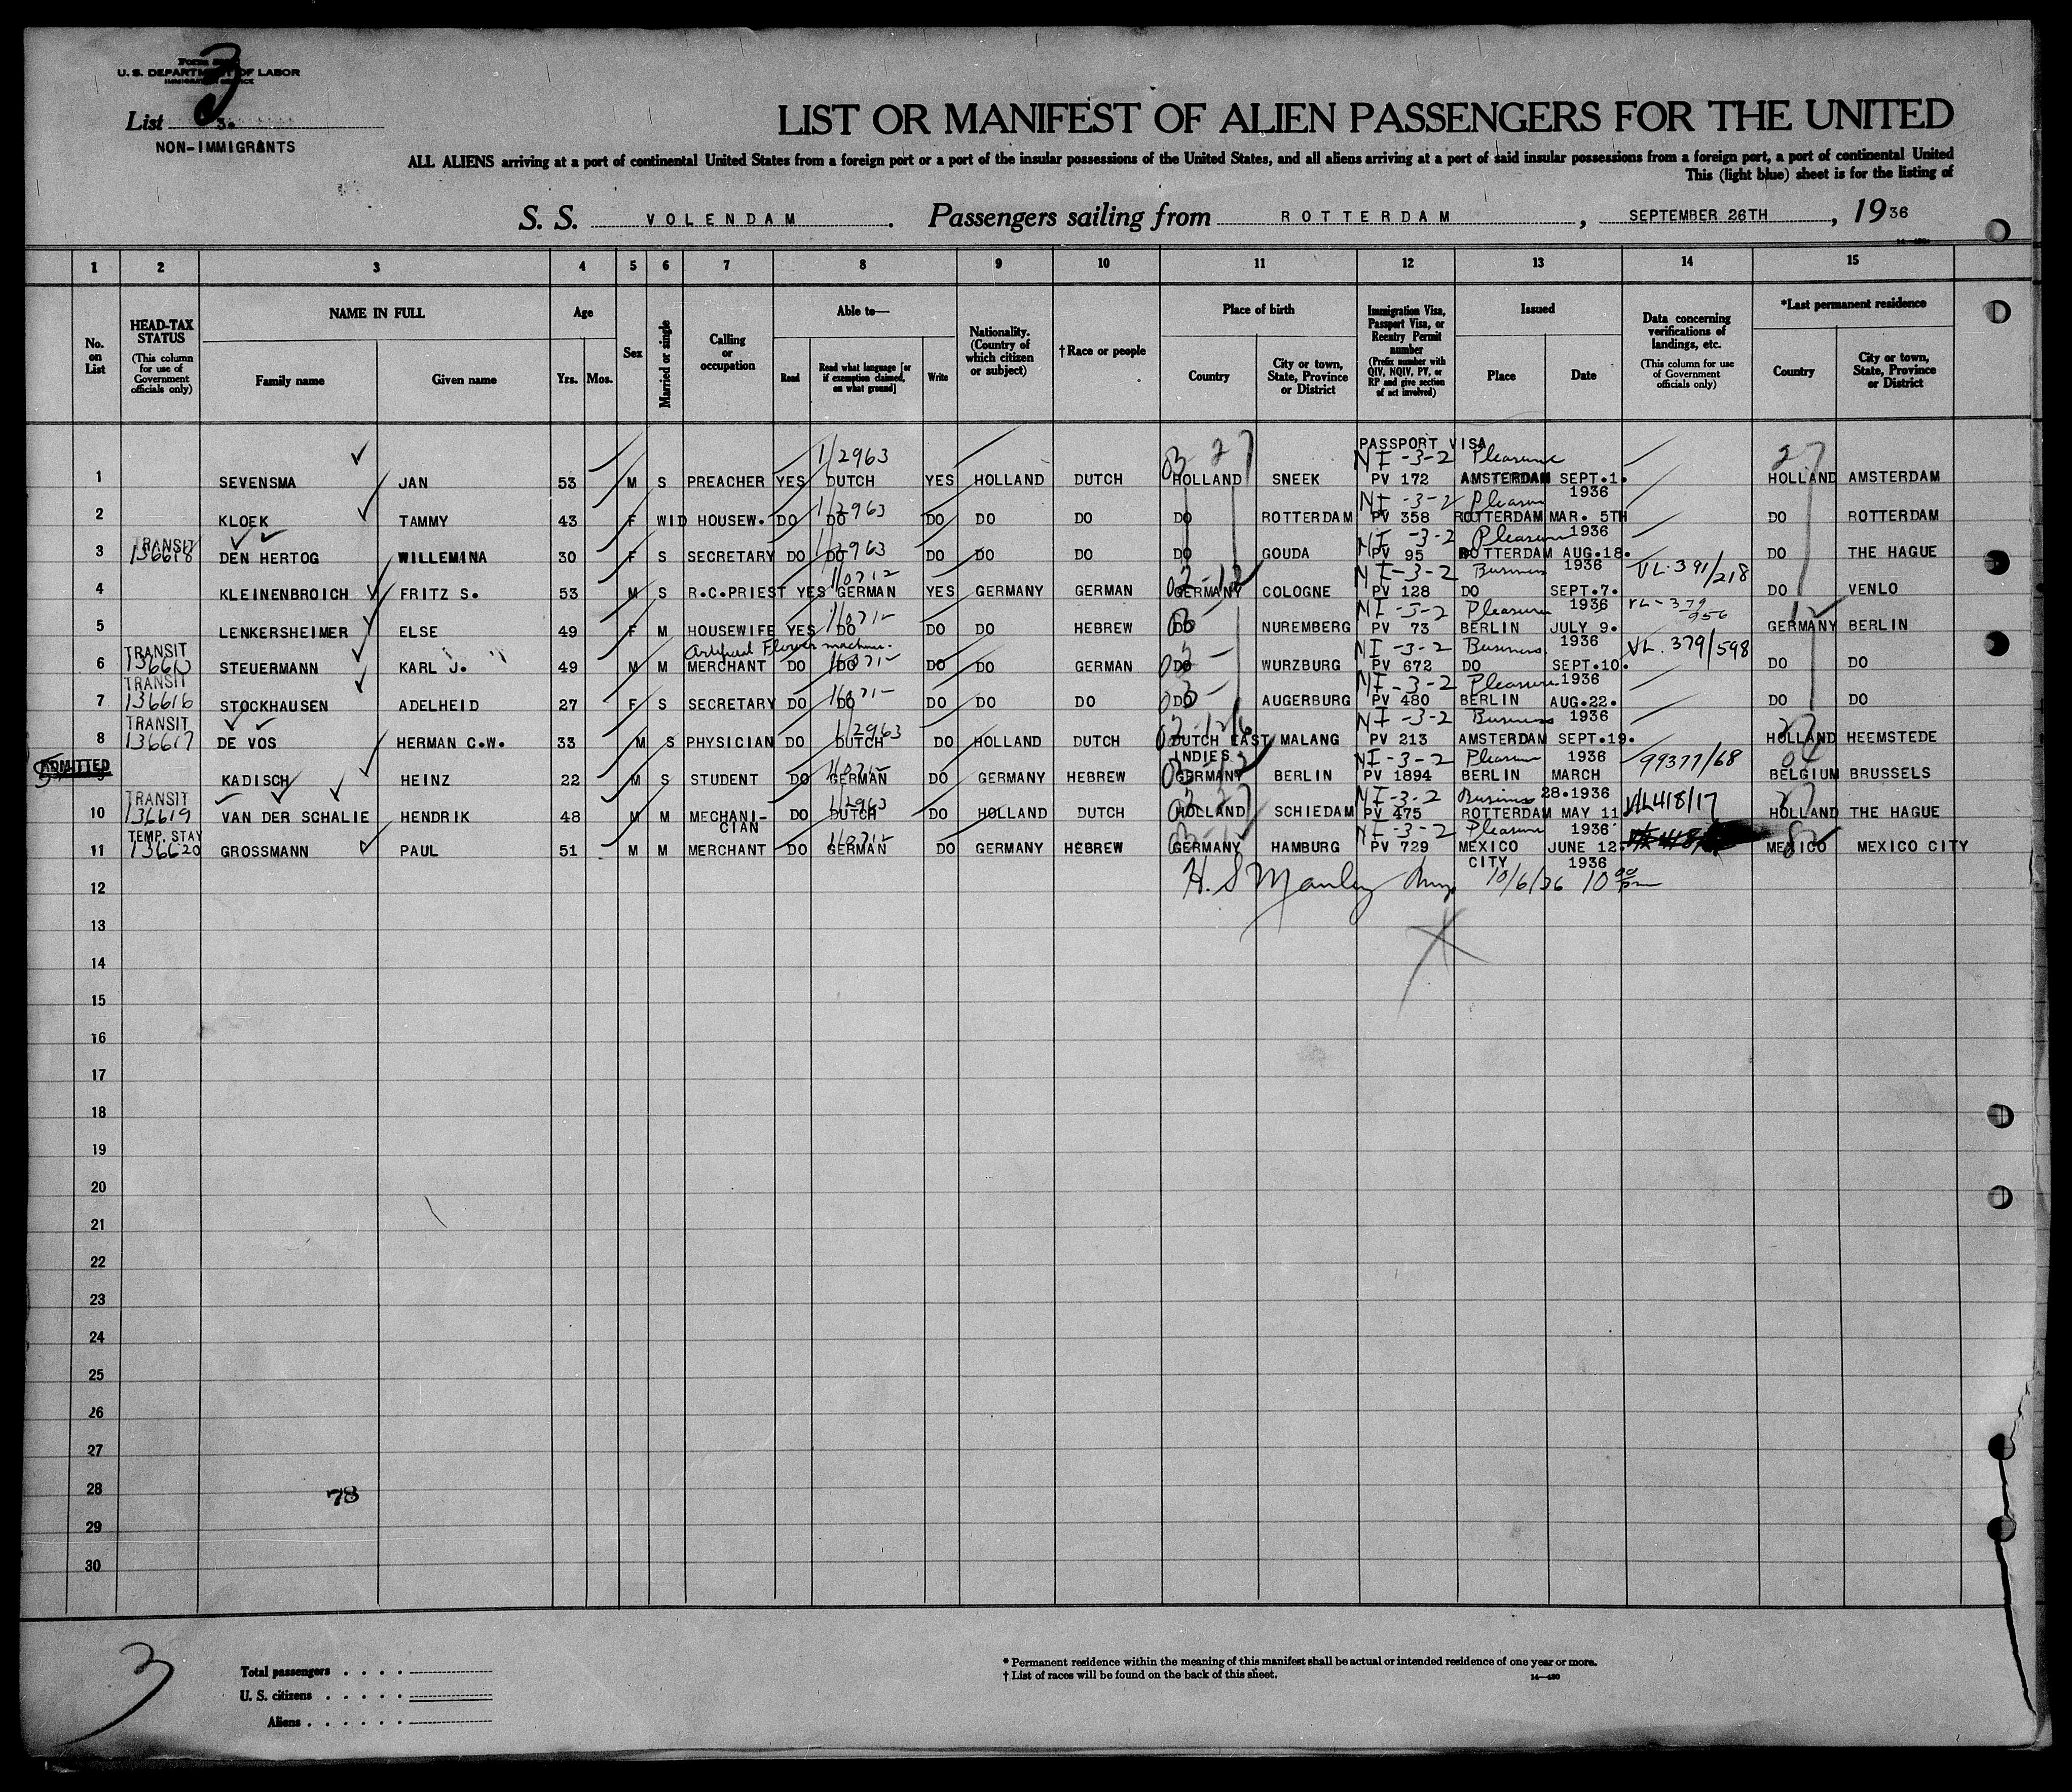 3
Form
U. S. DEPARTMENT OF LABOR
IMMIGRATION SERVICE
List 3.
NON-IMMIGRANTS
LIST OR MANIFEST OF ALIEN PASSENGERS FOR THE UNITED
ALL ALIENS arriving at a port of continental United States from a foreign port or a port of the insular possessions of the United States, and all aliens arriving at a port of said insular possessions from a foreign port, a port of continental United
This (light blue) sheet is for the listing of
S. S. VOLENDAM. Passengers sailing from ROTTERDAM, SEPTEMBER 26TH, 1936
1 2 3 4 5 6 7 8 9 10 11 12 13 14 15
No. on List
HEAD-TAX STATUS (This column for use of Government officials only)
NAME IN FULL Family name Given name
Age Yrs. Mos.
Sex
Married or single
Calling or occupation
Able to— Read Read what language [or if exemption claimed, on what ground] Write
Nationality. (Country of which citizen or subject)
†Race or people
Place of birth Country City or town, State, Province or District
Immigration Visa, Passport Visa, or Reentry Permit number (Prefix number with QIV, NQIV, PV, or RP and give section of act involved)
Issued Place Date
Data concerning verifications of landings, etc. (This column for use of Government officials only)
*Last permanent residence Country City or town, State, Province or District
PASSPORT VISA
1/2963 03 27 NI-3-2 Pleasure 27
1 SEVENSMA JAN 53 M S PREACHER YES DUTCH YES HOLLAND DUTCH HOLLAND SNEEK PV 172 AMSTERDAM SEPT.1. 1936 HOLLAND AMSTERDAM
1/2963 NI-3-2 Pleasure
2 KLOEK TAMMY 43 F WID HOUSEW. DO DO DO DO DO DO ROTTERDAM PV 358 ROTTERDAM MAR. 5TH 1936 DO ROTTERDAM
TRANSIT 136618 1/2963 NI-3-2 Pleasure
3 DEN HERTOG WILLEMINA 30 F S SECRETARY DO DO DO DO DO DO GOUDA PV 95 ROTTERDAM AUG.18. 1936 DO THE HAGUE
NI-3-2 Business VL.391/218
4 KLEINENBROICH FRITZ S. 53 M S R.C.PRIEST YES GERMAN YES GERMANY GERMAN GERMANY COLOGNE PV 128 DO SEPT.7. 1936 DO VENLO
NI-3-2 Pleasure VL-379/956
5 LENKERSHEIMER ELSE 49 F M HOUSEWIFE YES DO DO DO HEBREW DO NUREMBERG PV 73 BERLIN JULY 9. 1936 GERMANY BERLIN
TRANSIT Artificial Flower machine. NI-3-2 Business VL.379/598
6 STEUERMANN KARL J. 49 M M MERCHANT DO DO DO DO GERMAN DO WURZBURG PV 672 DO SEPT.10. 1936 DO DO
TRANSIT 136616 NI-3-2 Pleasure
7 STOCKHAUSEN ADELHEID 27 F S SECRETARY DO DO DO DO DO DO AUGERBURG PV 480 BERLIN AUG.22. 1936 DO DO
TRANSIT 136617 1/2963 NI-3-2 Business
8 DE VOS HERMAN C.W. 33 M S PHYSICIAN DO DUTCH DO HOLLAND DUTCH DUTCH EAST INDIES MALANG PV 213 AMSTERDAM SEPT.19. 1936 HOLLAND HEEMSTEDE
ADMITTED NI-3-2 Pleasure 99377/68
9 KADISCH HEINZ 22 M S STUDENT DO GERMAN DO GERMANY HEBREW GERMANY BERLIN PV 1894 BERLIN MARCH 28.1936 BELGIUM BRUSSELS
TRANSIT 136619 1/2963 NI-3-2 Business VL418/17
10 VAN DER SCHALIE HENDRIK 48 M M MECHANI-CIAN DO DUTCH DO HOLLAND DUTCH HOLLAND SCHIEDAM PV 475 ROTTERDAM MAY 11 1936 HOLLAND THE HAGUE
TEMP. STAY 136620 NI-3-2 Pleasure 82
11 GROSSMANN PAUL 51 M M MERCHANT DO GERMAN DO GERMANY HEBREW GERMANY HAMBURG PV 729 MEXICO CITY JUNE 12. 1936 MEXICO MEXICO CITY
12 H. S Manley 10/6/36 10 00 pm
13
14
15
16
17
18
19
20
21
22
23
24
25
26
27
28 78
29
30
3
Total passengers
U. S. citizens
Aliens
* Permanent residence within the meaning of this manifest shall be actual or intended residence of one year or more.
† List of races will be found on the back of this sheet.
14—430